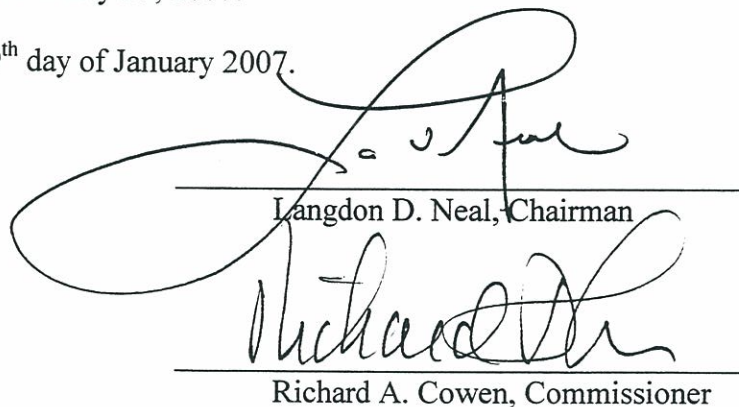 th day of January 2007.
Langdon D. Neal, Chairman
Richard
Richard A. Cowen, Commissioner